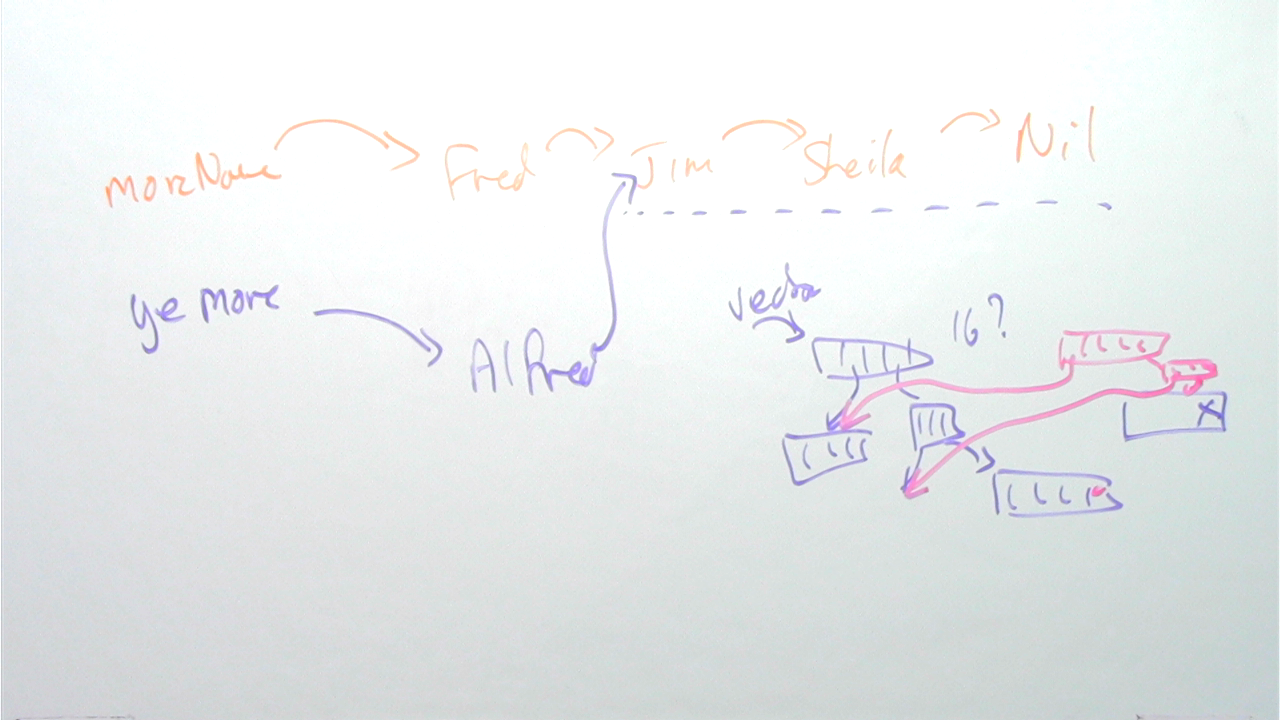 moreName Fred Jim Sheila Nil
ye more
Alfred
vector
16?
X